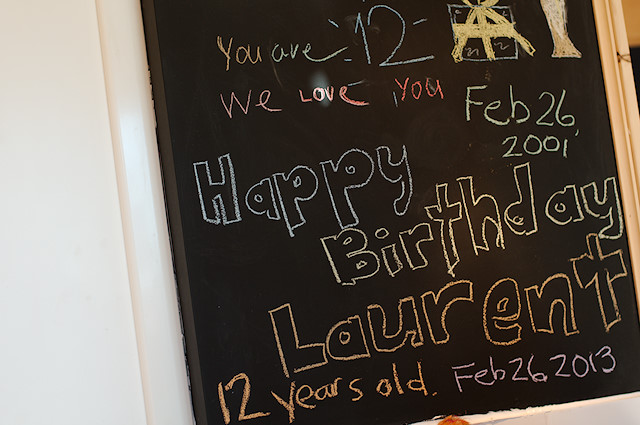 You are 12
We LOVE YOU
Feb 26
2001
Happy
Birthday
Laurent
12 years old. Feb 26 2013